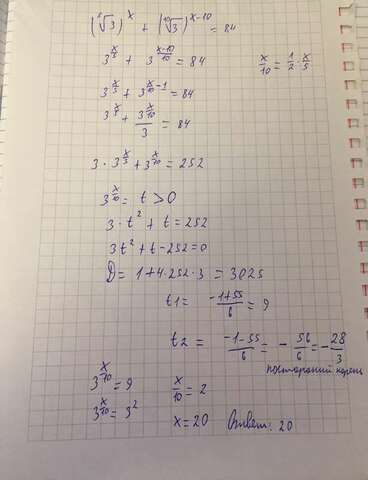 (⁵√3)^x + (¹⁰√3)^(x-10) = 84
3^(x/5) + 3^((x-10)/10) = 84
x/10 = 1/2 · x/5
3^(x/5) + 3^(x/10 - 1) = 84
3^(x/5) + 3^(x/10)/3 = 84
3 · 3^(x/5) + 3^(x/10) = 252
3^(x/10) = t > 0
3 · t² + t = 252
3t² + t - 252 = 0
D = 1 + 4 · 252 · 3 = 3025
t1 = (-1+55)/6 = 9
t2 = (-1-55)/6 = -56/6 = -28/3
посторонний корень
3^(x/10) = 9
x/10 = 2
3^(x/10) = 3²
x = 20
Ответ: 20